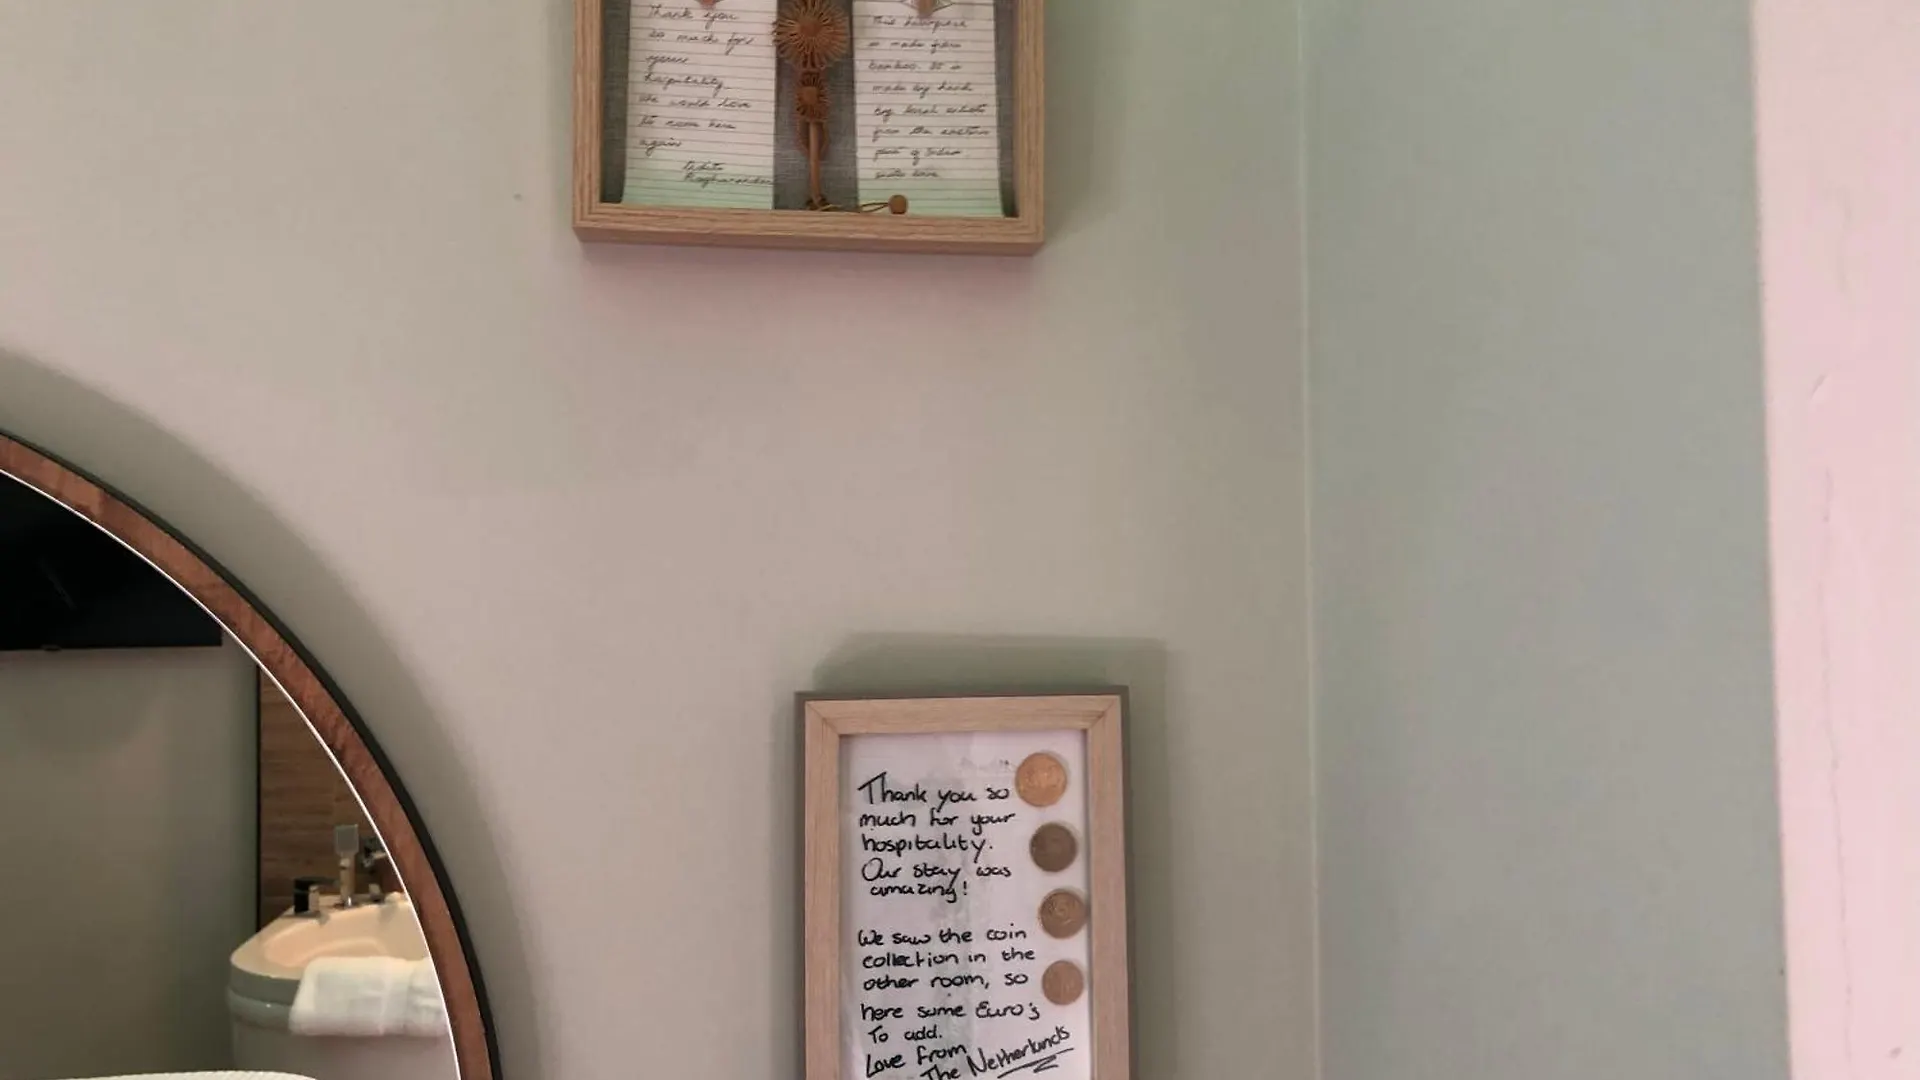 Thank you
so much for
your
hospitality.
We would love
to come here
again
This hairpiece
is made from
bamboo. It is
made by hand
by local artists
from the eastern
part of India.
Thank you so
much for your
hospitality.
Our stay was
amazing!
We saw the coin
collection in the
other room, so
here some Euro's
To add.
Love from
The Netherlands